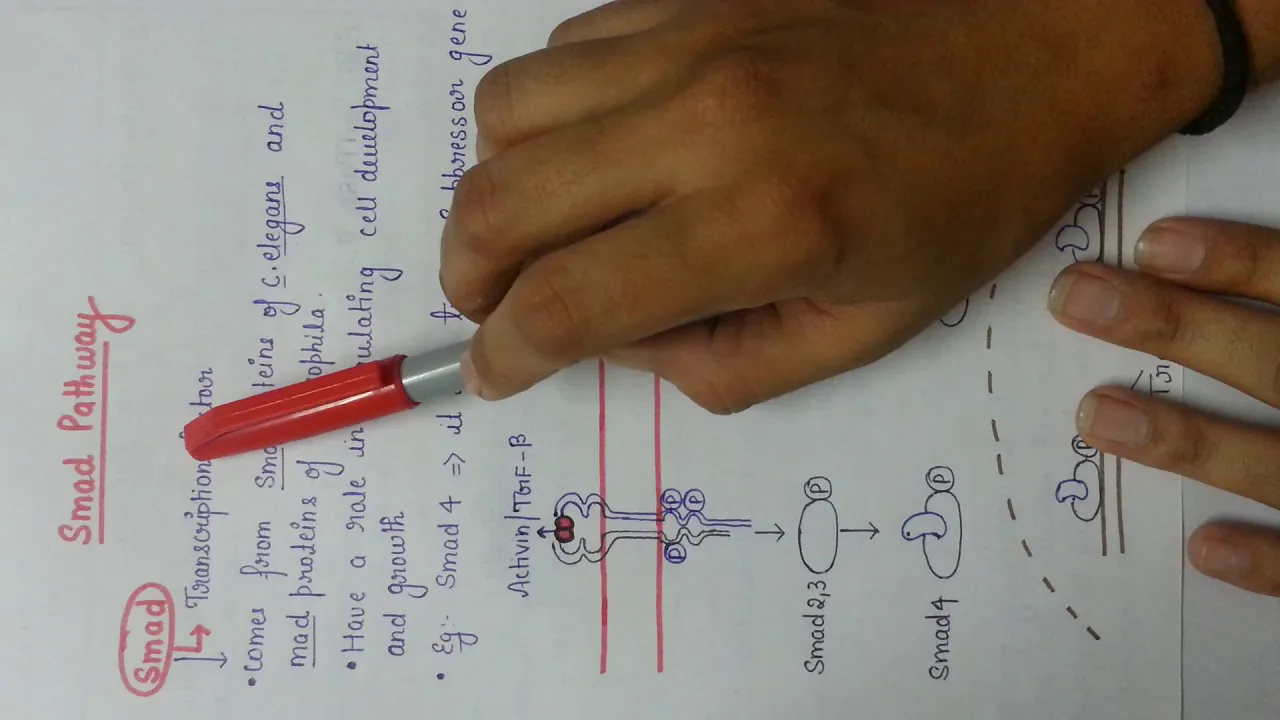 Smad Pathway
Smad
Transcription
• Comes from teins of C. elegans and
mad proteins of
• Have a role in cell development
and growth
• Eg:- Smad 4 => it gene
Activin/TGF-β
P P
P
Smad 2,3 P
Smad 4 P
P